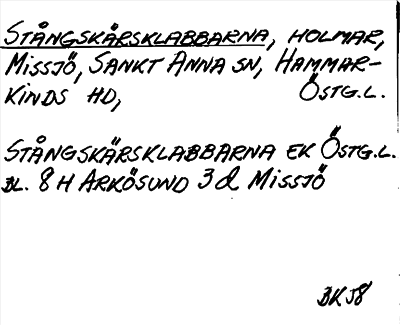 STÅNGSKÄRSKLABBARNA, HOLMAR,
MISSJÖ, SANKT ANNA SN, HAMMAR-
KINDS HD, ÖSTG.L.
STÅNGSKÄRSKLABBARNA EK ÖSTG.L.
BL. 8 H ARKÖSUND 3 d MISSJÖ
BK 58